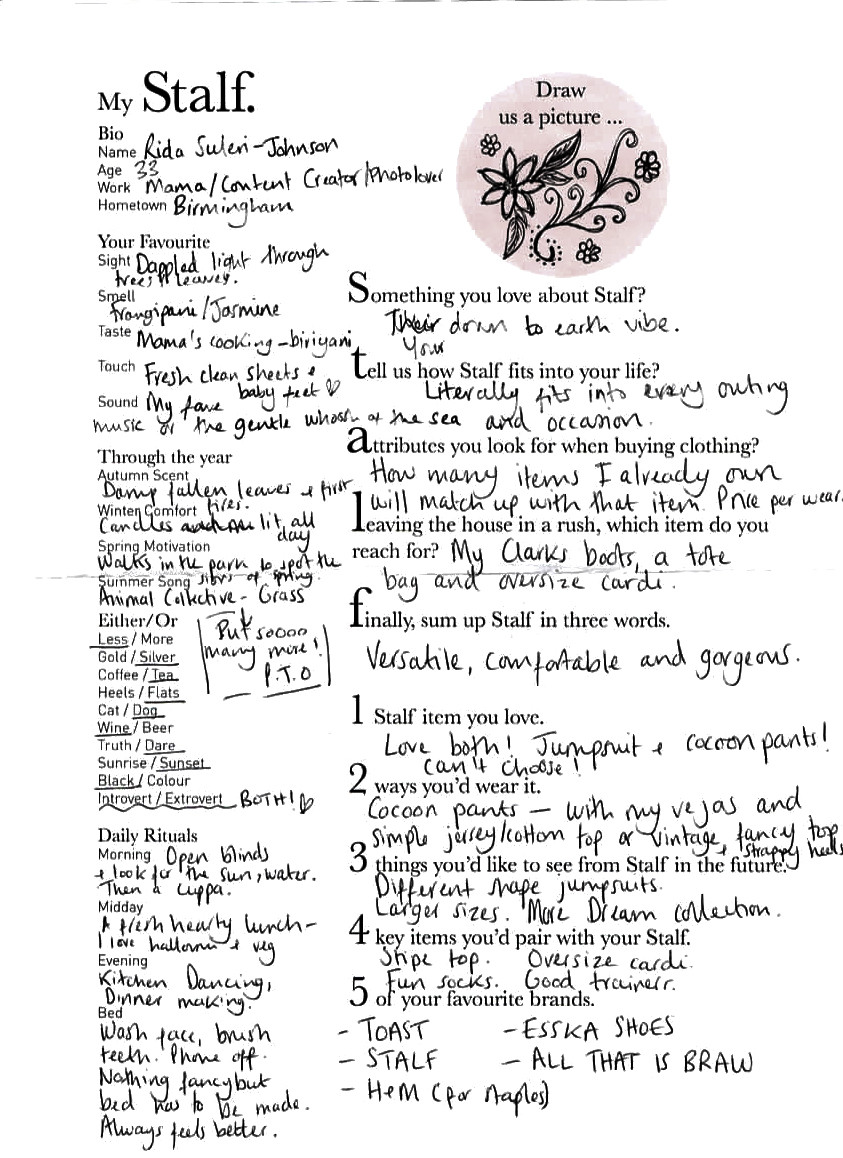 My Stalf.
Bio
Name Rida Suleri-Johnson
Age 33
Work Mama/Content Creator/Photolover
Hometown Birmingham
Your Favourite
Sight Dappled light through
trees + leaves.
Smell
Frangipani/Jasmine
Taste Mama's cooking - biriyani
Touch Fresh clean sheets +
baby feet ♡
Sound My fave
music or the gentle whoosh of the sea
Through the year
Autumn Scent
Damp fallen leaves + first
fires.
Winter Comfort
Candles lit all
day
Spring Motivation
Walks in the park to spot the
signs of spring.
Summer Song
Animal Collective - Grass
Either/Or
Less / More
Gold / Silver
Coffee / Tea
Heels / Flats
Cat / Dog
Wine / Beer
Truth / Dare
Sunrise / Sunset
Black / Colour
Introvert / Extrovert BOTH! ♡
Put soooo
many more!
P.T.O
Daily Rituals
Morning Open blinds
+ look for the sun, water.
Then a cuppa.
Midday
A fresh hearty lunch -
I love halloumi + veg
Evening
Kitchen Dancing,
Dinner making.
Bed
Wash face, brush
teeth. Phone off.
Nothing fancy but
bed has to be made.
Always feels better.
Draw
us a picture ...
Something you love about Stalf?
Their down to earth vibe.
Your
tell us how Stalf fits into your life?
Literally fits into every outing
and occasion.
attributes you look for when buying clothing?
How many items I already own
will match up with that item. Price per wear.
leaving the house in a rush, which item do you
reach for? My Clarks boots, a tote
bag and oversize cardi.
finally, sum up Stalf in three words.
Versatile, comfortable and gorgeous.
1 Stalf item you love.
Love both! Jumpsuit + cocoon pants!
can't choose!
2 ways you'd wear it.
Cocoon pants - with my vejas and
simple jersey/cotton top or vintage, fancy top
+ strappy heels
3 things you'd like to see from Stalf in the future.
Different shape jumpsuits.
Larger sizes. More Dream collection.
4 key items you'd pair with your Stalf.
Stripe top. Oversize cardi.
Fun socks. Good trainers.
5 of your favourite brands.
- TOAST - ESSKA SHOES
- STALF - ALL THAT IS BRAW
- H+M (for staples)